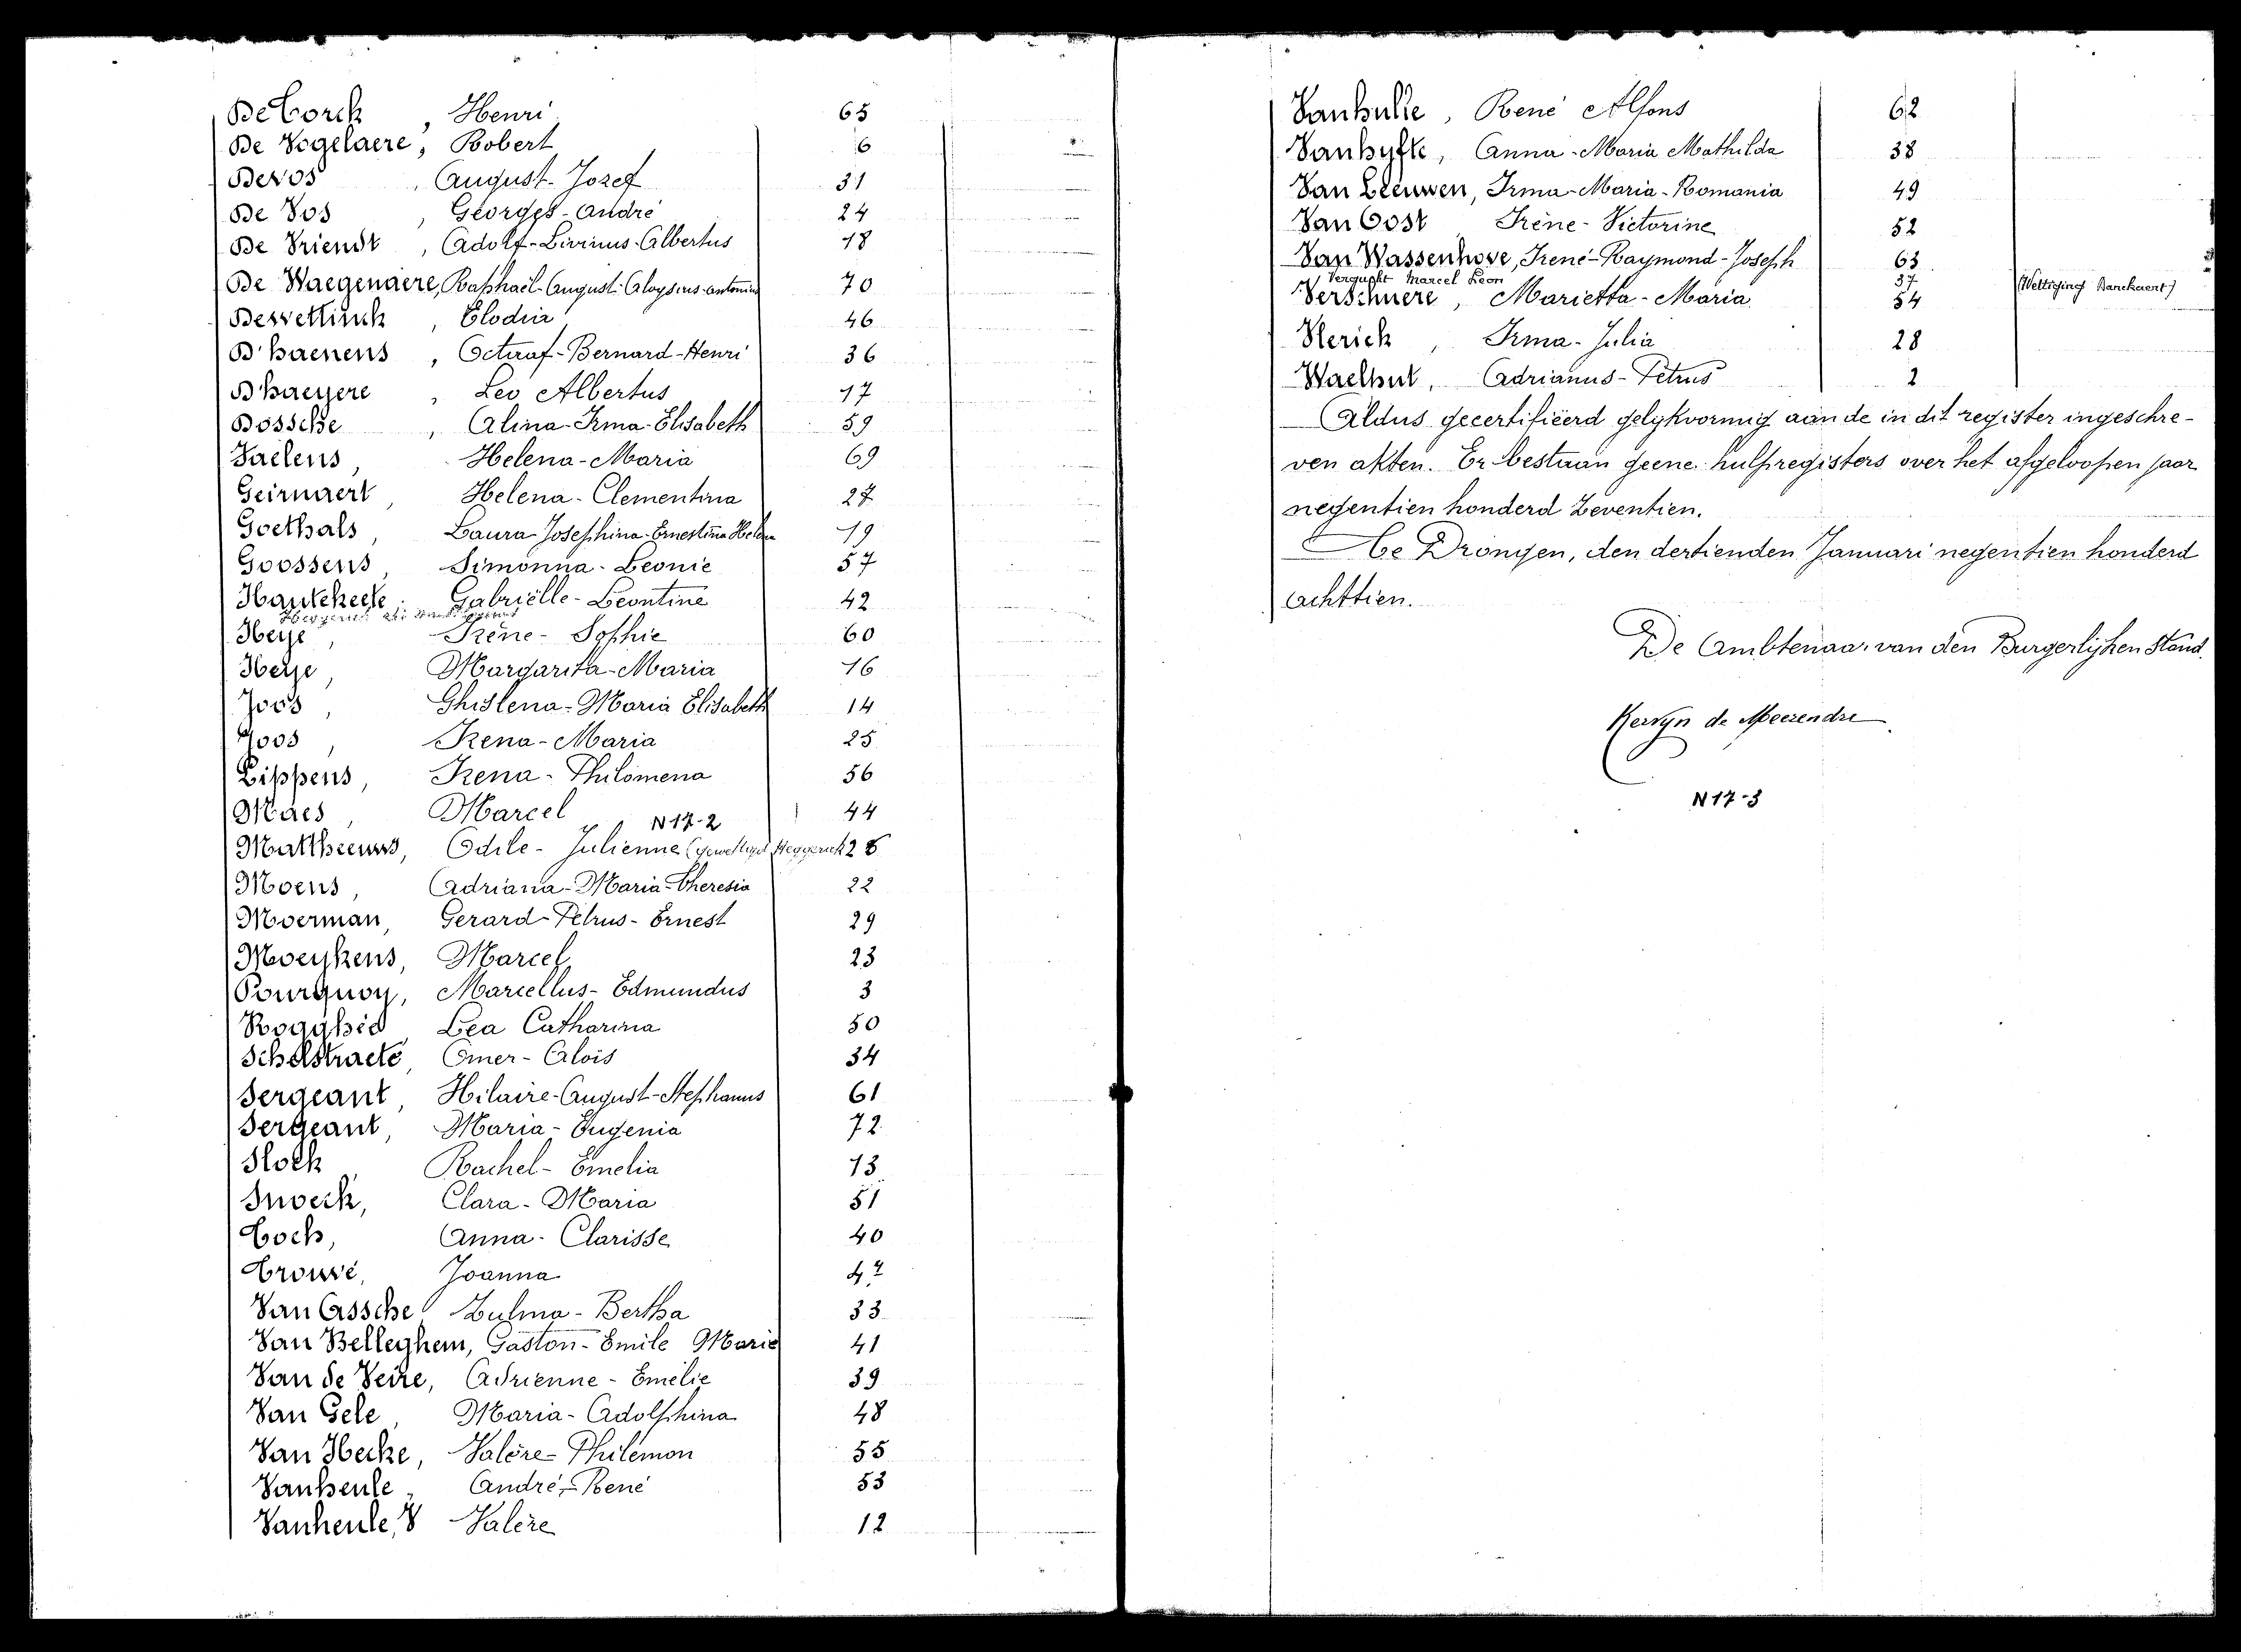 De Corck, Henri 65
De Vogelaere, Robert 6
Devos, August-Jozef 31
De Vos, Georges-André 24
De Vriendt, Adolf-Livinus-Albertus 18
De Waegenaere, Raphaël-August-Aloysius-Antonius 70
Dewettinck, Elodia 46
D'haenens, Octaaf-Bernard-Henri 36
Dhaeyere, Leo Albertus 17
Dossche, Alina-Irma-Elisabeth 59
Faelens, Helena-Maria 69
Geirnaert, Helena-Clementina 27
Goethals, Laura-Josephina-Ernestina Helena 19
Goossens, Simonna-Leonie 57
Hautekeete, Gabriëlle-Leontine 42
Heye, Irène-Sophie 60
Heye, Margarita-Maria 16
Joos, Ghislena-Maria Elisabeth 14
Joos, Irena-Maria 25
Lippens, Irena-Philomena 56
Maes, Marcel 44
N 17-2
Mattheeuws, Odile-Julienne (gewettigd Heggerick 26
Moens, Adriana-Maria-Theresia 22
Moerman, Gerard-Petrus-Ernest 29
Moeykens, Marcel 23
Pourquoy, Marcellus-Edmundus 3
Rogghé, Lea Catharina 50
Schelstraete, Omer-Alois 34
Sergeant, Hilaire-August-Stephanus 61
Sergeant, Maria-Eugenia 72
Slock, Rachel-Emelia 13
Snoeck, Clara-Maria 51
Toch, Anna-Clarisse 40
Trouvé, Joanna 47
Van Assche, Zulma-Bertha 33
Van Belleghem, Gaston-Emile Marie 41
Van de Veire, Adrienne-Emelie 39
Van Gele, Maria-Adolphina 48
Van Hecke, Valère-Philemon 55
Vanheule, André-René 53
Vanheule, V Valère 12
Vanhulle, René Alfons 62
Vanhyfte, Anna-Maria Mathilda 38
Van Leeuwen, Irma-Maria-Romania 49
Van Oost Irène-Victorine 52
Van Wassenhove, Irené-Raymond-Joseph 63
Vergucht Marcel Leon 37 (Wettiging Banckaert)
Verschuere, Marietta-Maria 54
Vlerick, Irma-Julia 28
Waelput, Adrianus-Petrus 2
Aldus gecertifieerd gelykvormig aan de in dit register ingeschre-
ven akten. Er bestaan geene hulpregisters over het afgeloopen jaar
negentien honderd zeventien.
Te Drongen, den dertienden Januari negentien honderd
achttien.
De Ambtenaar van den Burgerlijken Stand.
Kervyn de Meerendre
N 17-3